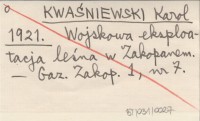 KWAŚNIEWSKI Karol
1921. Wojskowa eksploa-
tacja leśna w Zakopanem.
— Gaz. Zakop. 1, nr 7.